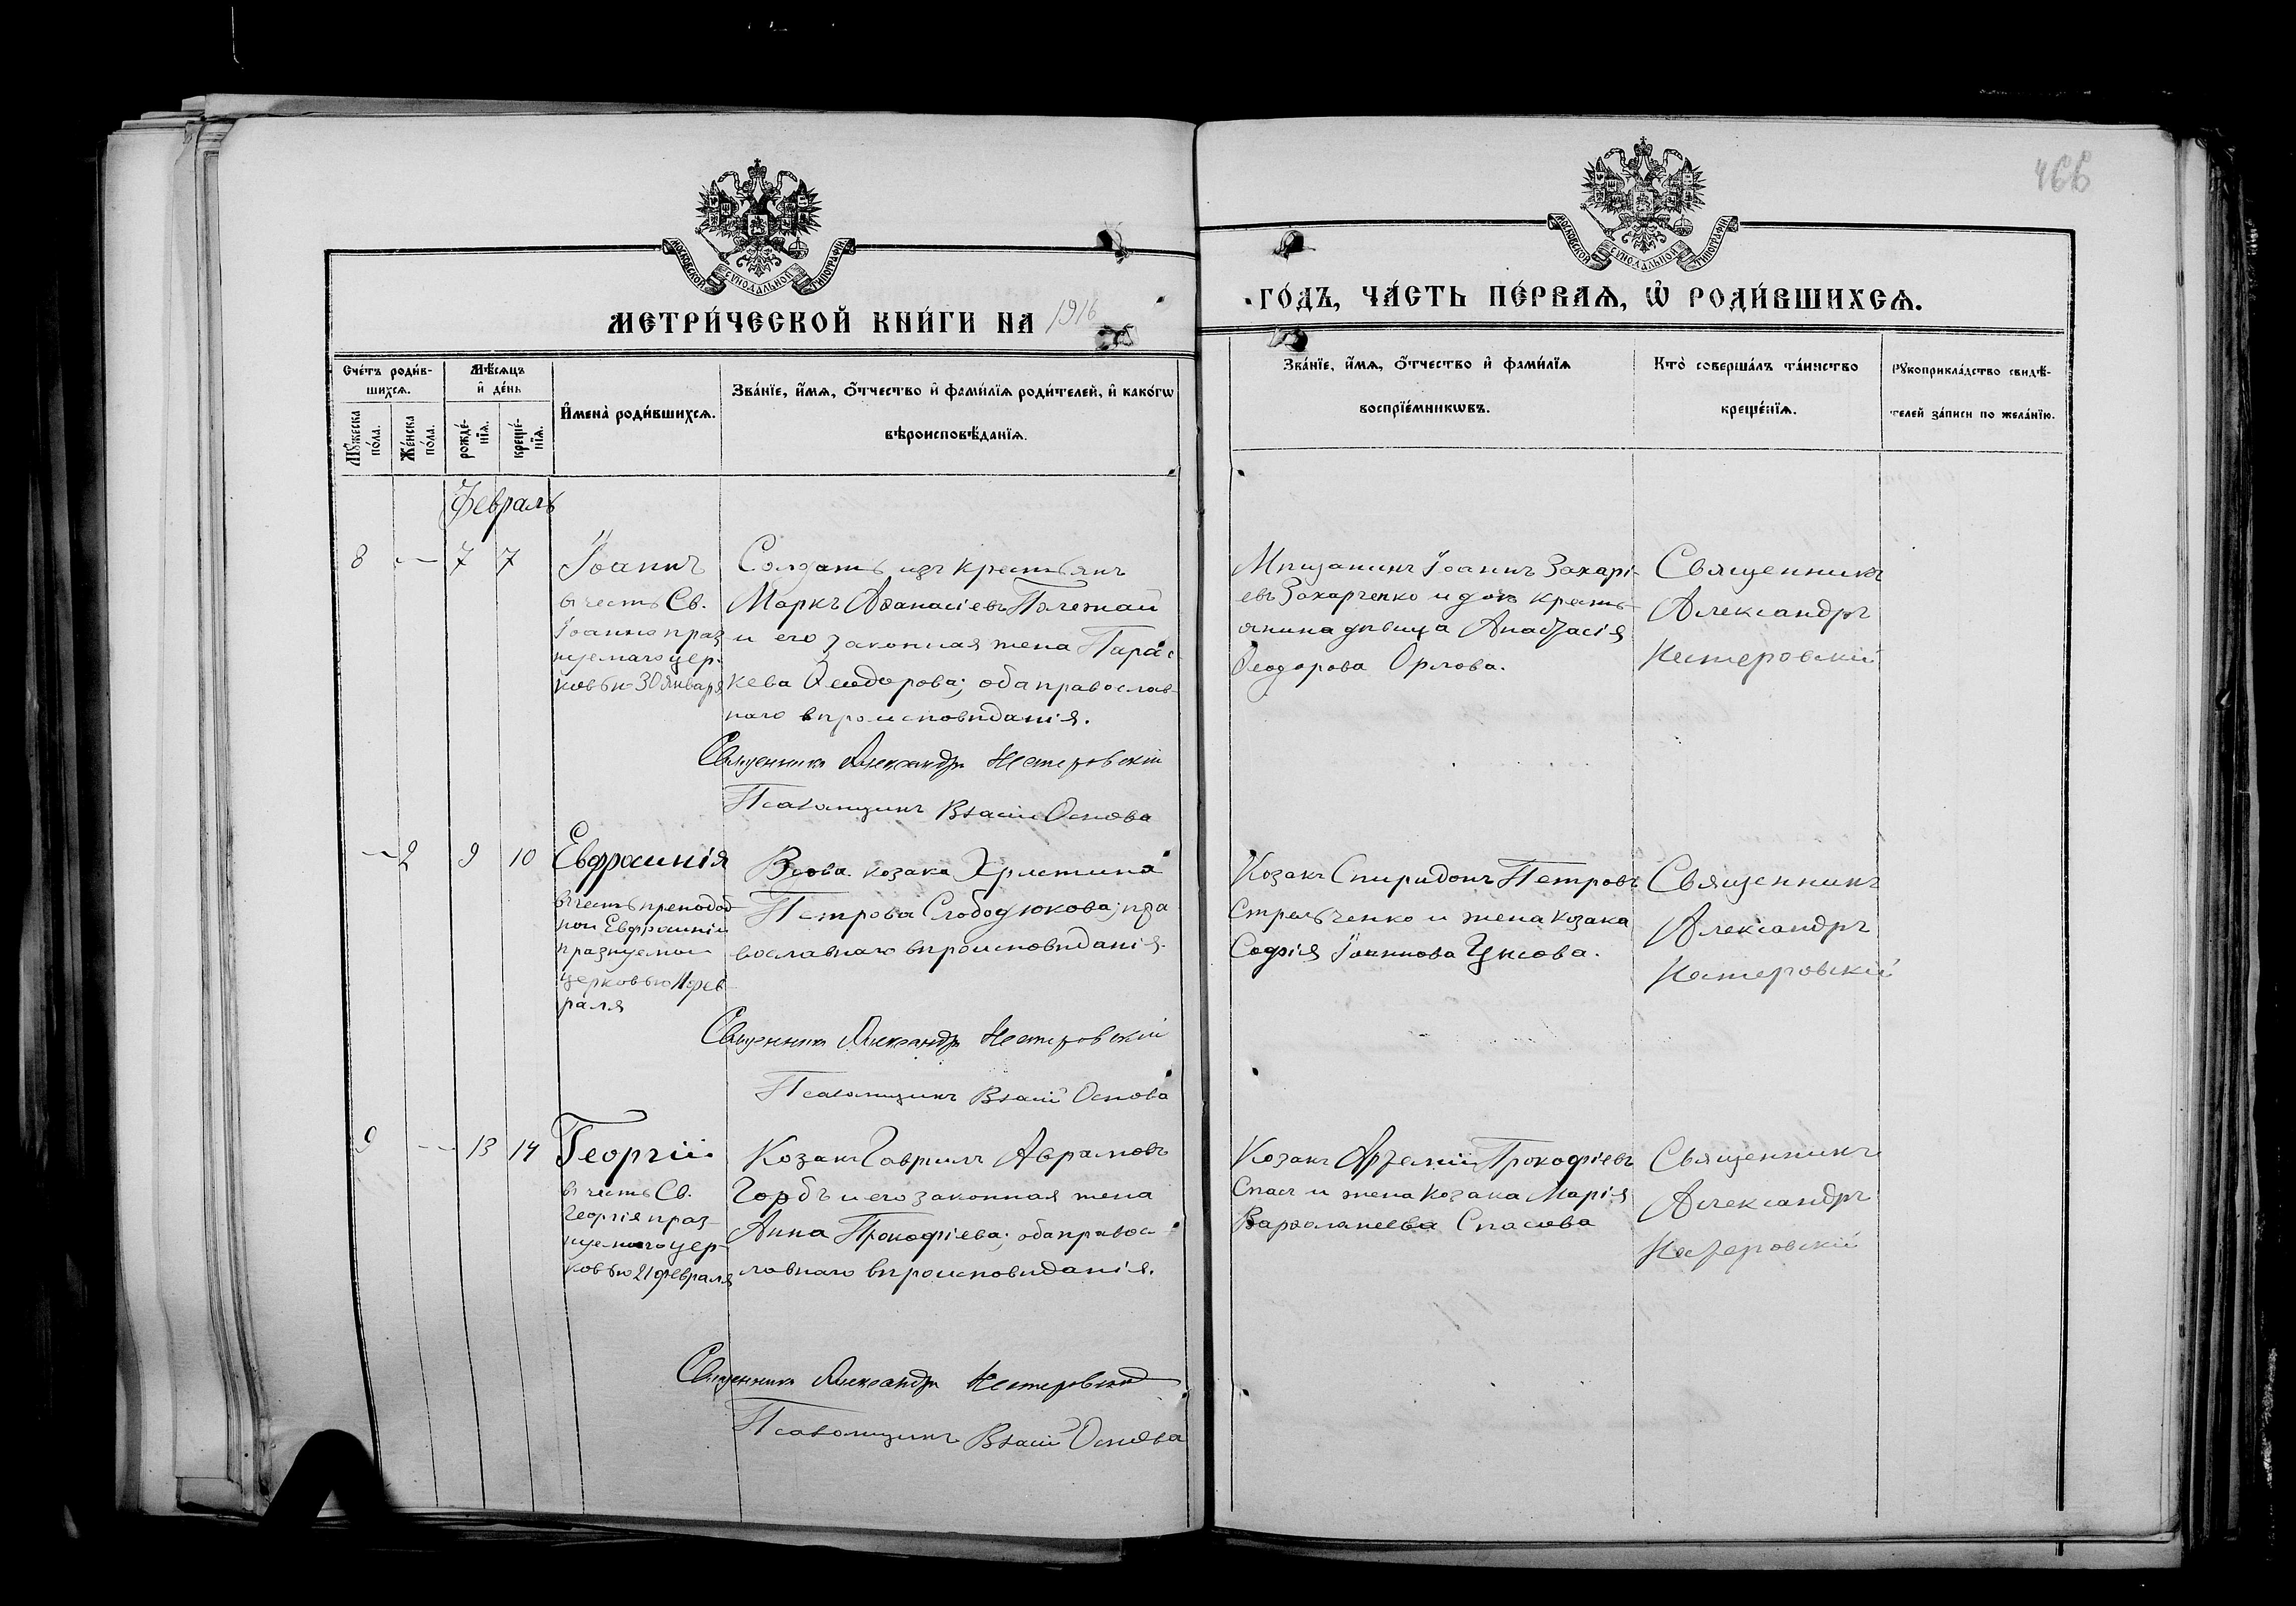 466
МОСКОВСКОЙ СѴНОДАЛЬНОЙ ТИПОГРАФІИ
МОСКОВСКОЙ СѴНОДАЛЬНОЙ ТИПОГРАФІИ
МЕТРИ́ЧЕСКОЙ КНИ́ГИ НА 1916
ГО́ДЪ, ЧА́СТЬ ПЕ́РВАѦ, Ѡ҆ РОДИ́ВШИХСѦ.
Сче́тъ роди́в-
шихсѧ.
Мѣ́сѧцъ
и҆ де́нь
Мꙋ́жеска по́ла.
Же́нска по́ла.
рожде́-
нїѧ.
креще́-
нїѧ.
И҆мена̀ роди́вшихсѧ.
Зва́нїе, и҆́мѧ, ѻ҆́тчество и҆ фамѝлїѧ роди́телей, и҆ како́гѡ
вѣроисповѣ́данїѧ.
Зва́нїе, и҆́мѧ, ѻ҆́тчество и҆ фами́лїѧ
воспрїе́мникѡвъ.
Кто̀ соверша́лъ та́инство
креще́нїѧ.
Рꙋкоприкла́дство свидѣ́-
телей за́писи по жела́нїю.
Февраль
8 — 7 7
Іоаннъ
въ честь Св.
Іоанна праз
нуемаго цер-
ковью 30 января
Солдатъ изъ крестьянъ
Маркъ Аѳанасіевъ Полежай
и его законная жена Парас
кева Ѳеодорова; оба православ-
наго вѣроисповѣданія.
Священникъ Александръ Нестеровскій
Псаломщикъ Основа
Мѣщанинъ Іоаннъ Захарі-
евъ Захарченко и дочь кресть-
янина дѣвица Анастасія
Ѳеодорова Орлова.
Священникъ
Александръ
Нестеровскій
— 2 9 10
Евфросинія
въ честь преподоб
ной Евфросиніи
празнуемой
церковью фев-
раля
Вдова козака Христина
Петрова Слободюкова; пра
вославнаго вѣроисповѣданія.
Священникъ Александръ Нестеровскій
Псаломщикъ Основа
Козакъ Спиридонъ Петровъ
Стрельченко и жена козака
Софія Іоаннова
Священникъ
Александръ
Нестеровскій
9 — 13 14
Георгій
въ честь Св.
Георгія праз-
нуемаго цер-
ковью 21 февраля
Козакъ Гавріилъ Аврамовъ
Горбъ и его законная жена
Анна Прокофіева; оба правос-
лавнаго вѣроисповѣданія.
Священникъ Александръ Нестеровскій
Псаломщикъ Основа
Козакъ Артемій Прокофіевъ
Спасъ и жена козака Марія
Варѳоломеева Спасова
Священникъ
Александръ
Нестеровскій